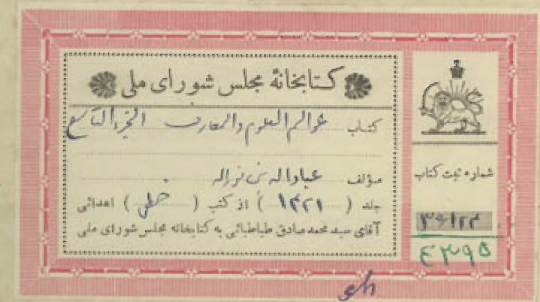 کتابخانهٔ مجلس شورای ملی
کتاب عوالم العلوم والمعارف الجزء التاسع
مؤلف عبدالله بن نورالله
جلد ( ۱۴۲۱ ) از کتب ( خطی ) اهدائی
آقای سید محمد صادق طباطبائی به کتابخانه مجلس شورای ملی
شماره ثبت کتاب
۳۶۱۲۴
۴۳۹۵